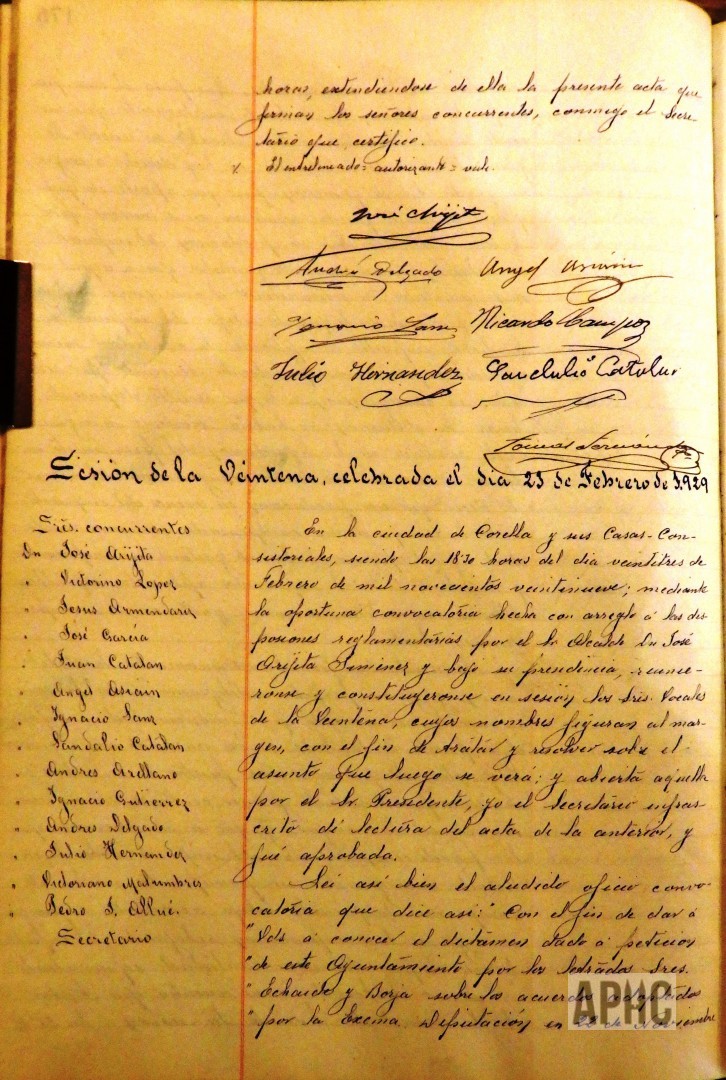 horas, extendiendose de ella la presente acta que
firman los señores concurrentes, conmigo el Secre
tario que certifico.
El entrelineado = autorizante = vale.
José Arijita
Andrés Delgado Angel Asiain
Ignacio Sanz Ricardo Campoz
Julio Hernandez Sandalio Catalan
Tomas
Sesión de la Veintena, celebrada el dia 23 de Febrero de 1.929
Sres. concurrentes
Dn José Arijita
" Victorino Lopez
" Jesus Armendariz
" José García
" Juan Catalan
" Angel Asiain
" Ignacio Sanz
" Sandalio Catalan
" Andres Arellano
" Ignacio Gutierrez
" Andres Delgado
" Julio Hernandez
" Victoriano Malumbres
" Pedro J. Allué.
Secretario
En la ciudad de Corella y sus Casas-Con-
sistoriales, siendo las 18'30 horas del dia veintitres de
Febrero de mil novecientos veintinueve; mediante
la oportuna convocatoria hecha con arreglo á las dis
posiones reglamentarias por el Sr. Alcalde Dn José
Arijita Jiménez y bajo su presidencia, reunie-
ronse y constituyeronse en sesión los Sres. Vocales
de la Veintena, cuyos nombres figuran al mar-
gen, con el fin de tratar y resolver sobre el
asunto que luego se verá: y abierta aquella
por el Sr. Presidente, yo el Secretario infras-
crito dí lectura del acta de la anterior, y
fué aprobada.
Leí así bien el aludido oficio convo-
catoria que dice así: " Con el fin de dar á
" Vds á conocer el dictámen dado á peticion
" de este Ayuntamiento por los letrados Sres.
" Echaide y Borja sobre los acuerdos adoptados
" por la Excma. Diputación en 22 de Noviembre
APHC